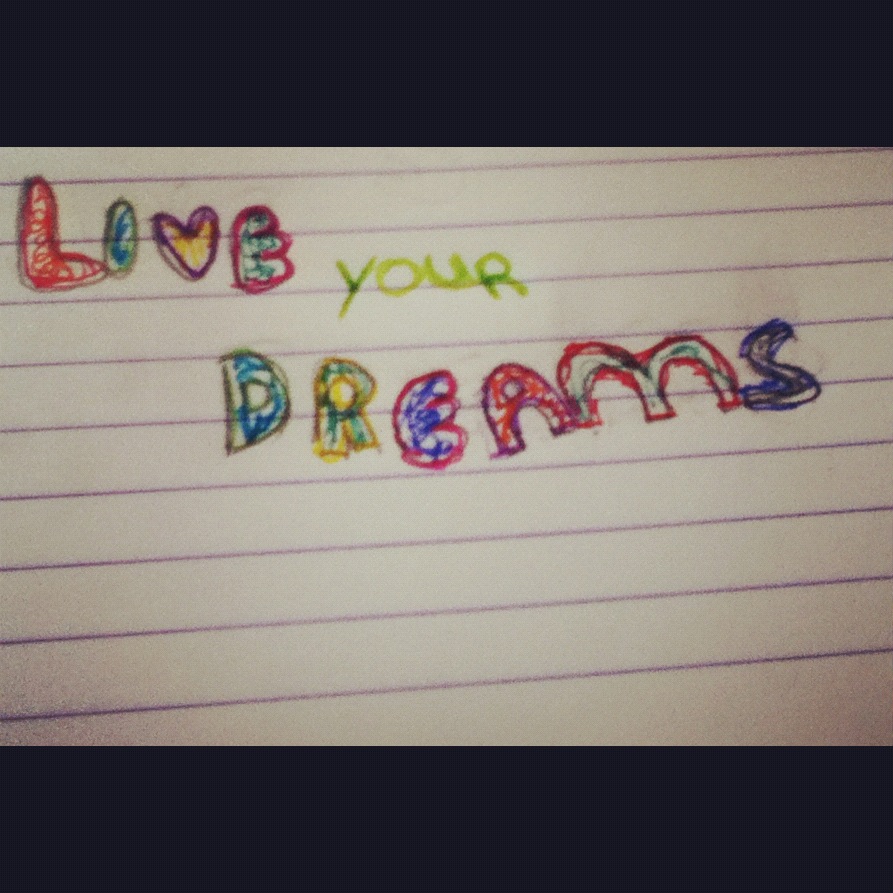 LIVE
YOUR
DREAMS